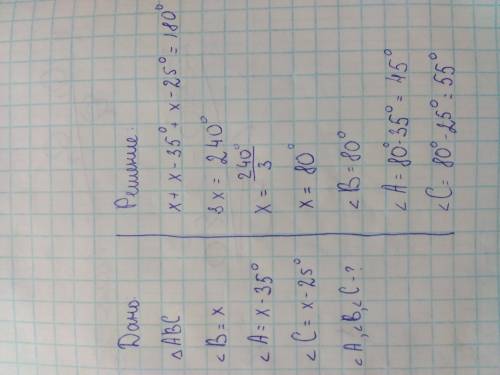 Дано:
△ABC
∠B = x
∠A = x - 35°
∠C = x - 25°
∠A, ∠B, ∠C - ?
Решение:
x + x - 35° + x - 25° = 180°
3x = 240°
x = 240°/3
x = 80°
∠B = 80°
∠A = 80° - 35° = 45°
∠C = 80° - 25° = 55°